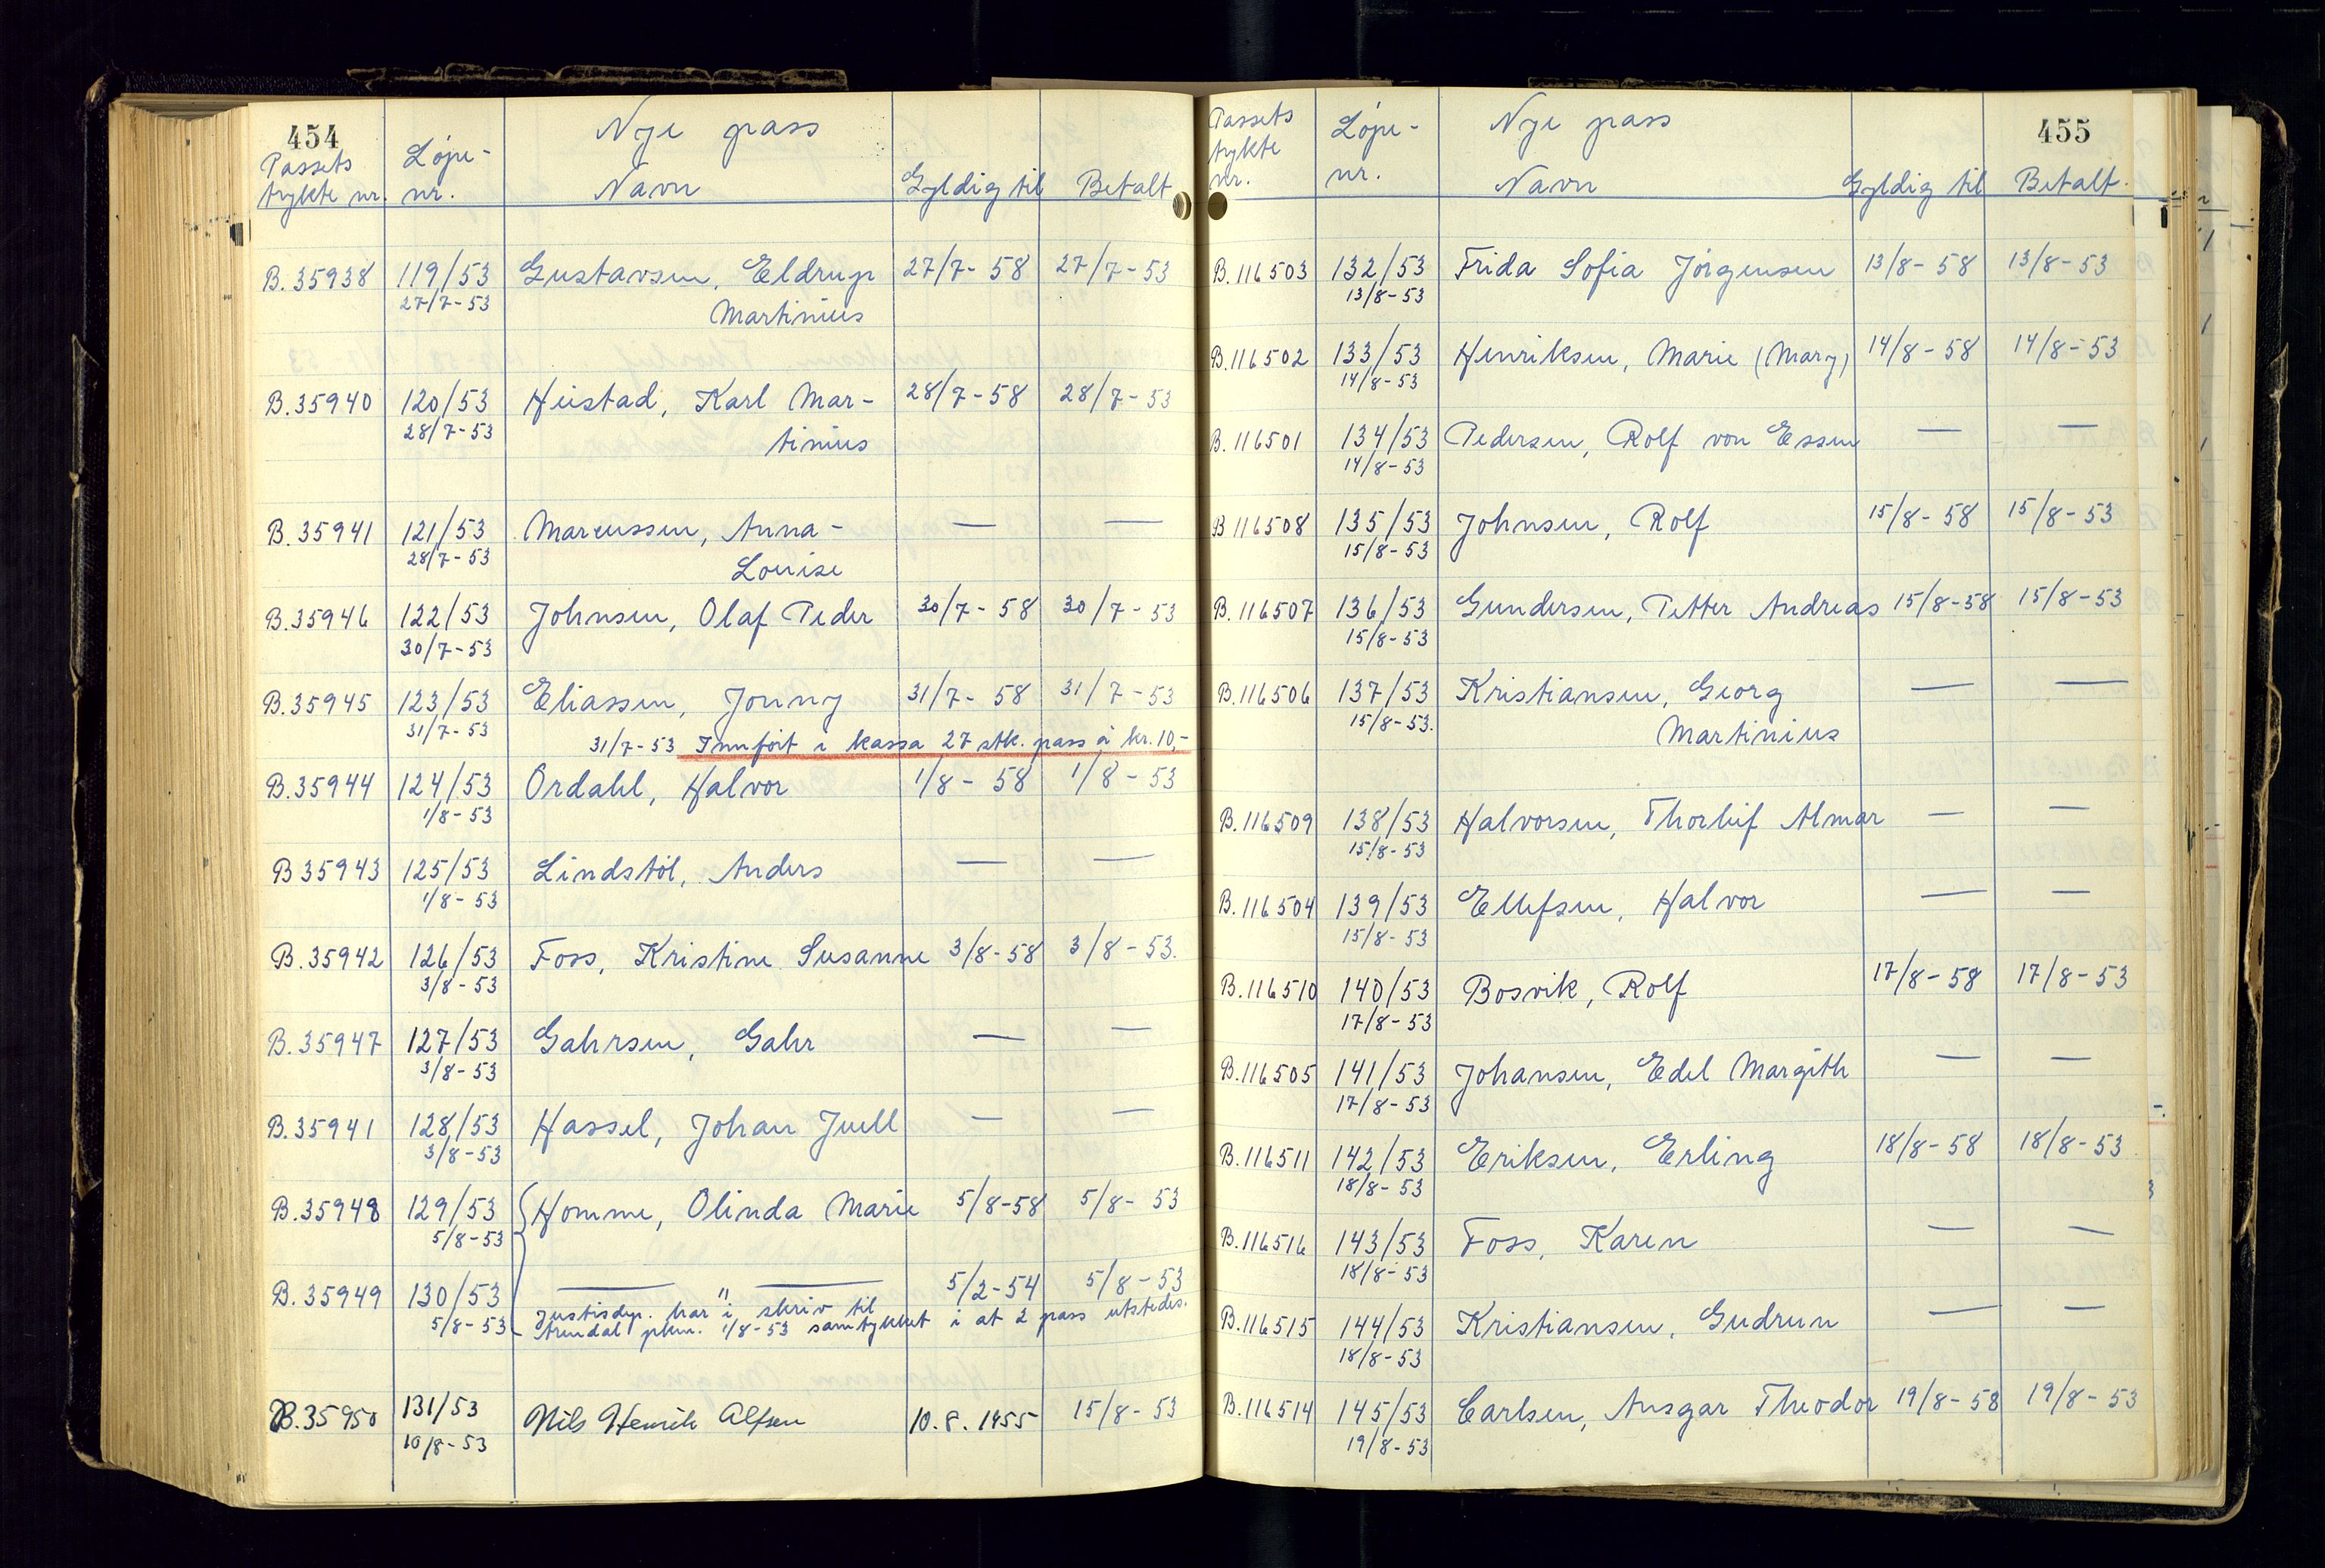 454
Nye pass
Passets trykte nr. Løpe-nr. Navn Gyldig til Betalt
B. 35938 119/53 Gustavsen, Eldrup 27/7-58 27/7-53
27/7-53 Martinius
B. 35940 120/53 Hustad, Karl Mar- 28/7-58 28/7-53
28/7-53 tinius
B. 35941 121/53 Marcussen, Anna- — —
28/7-53 Louise
B. 35946 122/53 Johnsen, Olaf Peder 30/7-58 30/7-53
30/7-53
B. 35945 123/53 Eliassen, Jonny 31/7-58 31/7-53
31/7-53 31/7-53 Innført i kassa 27 stk. pass à kr. 10,-
B. 35944 124/53 Ordahl, Halvor 1/8-58 1/8-53
1/8-53
B 35943 125/53 Lindstøl, Anders — —
1/8-53
B. 35942 126/53 Foss, Kristine Susanne 3/8-58 3/8-53.
3/8-53
B. 35947 127/53 Gahrsen, Gahr — —
3/8-53
B. 35941 128/53 Hassel, Johan Juell — —
3/8-53
B. 35948 129/53 Homme, Olinda Marie 5/8-58 5/8-53
5/8-53
B. 35949 130/53 — " — 5/2-54 5/8-53
Justisdep. har i skriv til
5/8-53 Arendal pkm. 1/8-53 samtykket i at 2 pass utstedes.
B. 35950 131/53 Nils Henrik Alfsen 10.8.1955 15/8-53
10/8-53
455
Nye pass
Passets trykte nr. Løpe-nr. Navn Gyldig til Betalt.
B. 116503 132/53 Frida Sofia Jørgensen 13/8-58 13/8-53
13/8-53
B. 116502 133/53 Henriksen, Marie (Mary) 14/8-58 14/8-53
14/8-53
B. 116501 134/53 Pedersen, Rolf von Essen — —
14/8-53
B 116508 135/53 Johnsen, Rolf 15/8-58 15/8-53
15/8-53
B. 116507 136/53 Gundersen, Petter Andreas 15/8-58 15/8-53
15/8-53
B. 116506 137/53 Kristiansen, Georg — —
15/8-53. Martinius
B. 116509 138/53 Halvorsen, Thorleif Almar — —
15/8-53
B. 116504 139/53 Ellefsen, Halvor — —
15/8-53
B. 116510 140/53 Bosvik, Rolf 17/8-58 17/8-53
17/8-53
B. 116505 141/53 Johansen, Edel Margith — —
17/8-53
B. 116511 142/53 Eriksen, Erling 18/8-58 18/8-53
18/8-53
B. 116516 143/53 Foss, Karen — —
18/8-53
B. 116515 144/53 Kristiansen, Gudrun — —
18/8-53
B. 116514 145/53 Carlsen, Ansgar Theodor 19/8-58 19/8-53
19/8-53